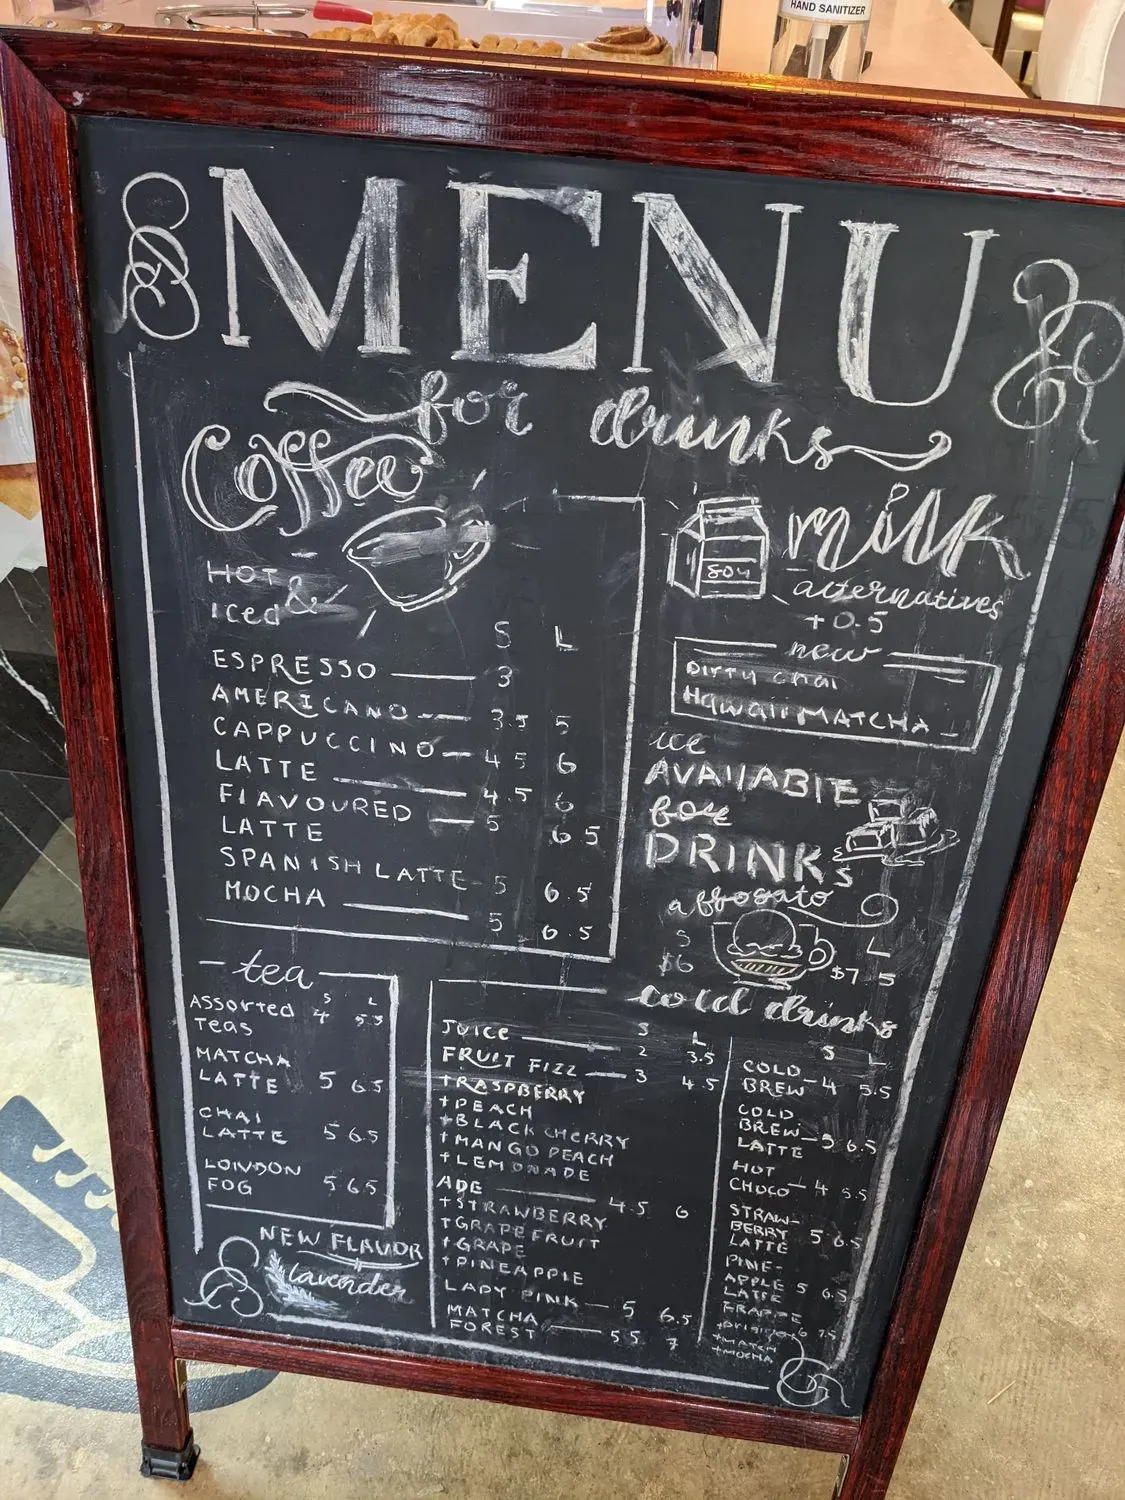 HAND SANITIZER
MENU
for drinks
Coffee
HOT &
iced
S L
ESPRESSO 3
AMERICANO 3.5 5
CAPPUCCINO 4 5 6
LATTE 4.5 6
FLAVOURED 5 6 5
LATTE
SPANISH LATTE 5 6.5
MOCHA 5 6.5
soy
milk
alternatives
+0.5
new
Dirty chai
Hawaii MATCHA
ice
AVAILABLE
for
DRINKS
affogato
S L
$6 $7 5
tea
S L
Assorted 4 5.5
Teas
MATCHA
LATTE 5 6.5
CHAI
LATTE 5 6.5
LONDON
FOG 5 6.5
NEW FLAVOR
lavender
cold drinks
S L
JUICE 2 3.5
FRUIT FIZZ 3 4.5
+RASPBERRY
+PEACH
+BLACK CHERRY
+MANGO PEACH
+LEMONADE
ADE 4.5 6
+STRAWBERRY
+GRAPEFRUIT
+GRAPE
+PINEAPPLE
LADY PINK 5 6.5
MATCHA
FOREST 5.5 7
S L
COLD
BREW 4 5.5
COLD
BREW 5 6.5
LATTE
HOT
CHOCO 4 5.5
STRAW-
BERRY 5 6.5
LATTE
PINE-
APPLE 5 6.5
LATTE
FRAPPE
+MATCH
+MOCHA